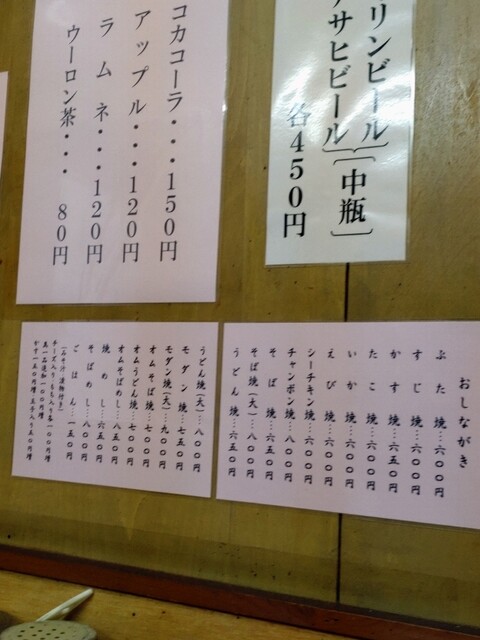 リンビール
アサヒビール
［中瓶］
各450円
コカコーラ・・・150円
アップル・・・120円
ラムネ・・・120円
ウーロン茶・・・80円
おしながき
ぶた焼…六〇〇円
すじ焼…六〇〇円
かす焼…六五〇円
たこ焼…六五〇円
いか焼…六〇〇円
えび焼…六五〇円
シーチキン焼…六五〇円
チャンポン焼…八〇〇円
そば焼…六五〇円
そば焼(大)…八〇〇円
うどん焼…六五〇円
うどん焼(大)…八〇〇円
モダン焼…七五〇円
モダン焼(大)…九〇〇円
オムそば焼…七〇〇円
オムうどん焼…七〇〇円
オムそばめし…八五〇円
焼めし…六五〇円
そばめし…八〇〇円
ごはん…一五〇円
(みそ汁・漬物付き)
チーズ入り・もち入り各一〇〇円増
具一品追加一〇〇円増
かす一五〇円増 玉子入り五〇円増